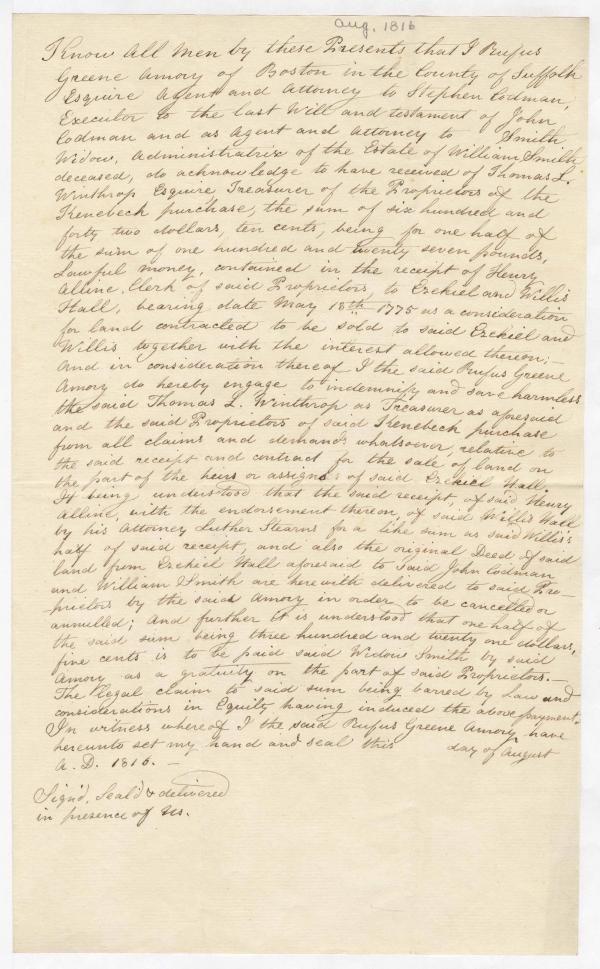 Aug. 1816
Know All Men by these Presents that I Rufus
Greene Amory of Boston in the County of Suffolk
Esquire Agent and Attorney to Stephen Codman,
Executor to the last Will and testament of John
Codman and as Agent and Attorney to Smith
Widow, Administratrix of the Estate of William Smith
deceased, do acknowledge to have received of Thomas L.
Winthrop Esquire Treasurer of the Proprietors of the
Kenebeck purchase, the sum of six hundred and
forty two dollars, ten cents, being for one half of
the sum of one hundred and twenty seven pounds,
Lawful money, contained in the receipt of Henry
Alline, Clerk of said Proprietors, to Ezekiel and Willis
Hall, bearing date May 18th 1775 as a consideration
for land contracted to be sold to said Ezekiel and
Willis together with the interest allowed thereon;—
And in consideration thereof I the said Rufus Greene
Amory do hereby engage to indemnify and save harmless
the said Thomas L. Winthrop as Treasurer as aforesaid
and the said Proprietors of said Kenebeck purchase
from all claims and demands whatsoever, relative to
the said receipt and contract for the sale of land on
the part of the heirs or assigns of said Ezekiel Hall.
It being understood that the said receipt, of said Henry
Alline, with the endorsement thereon, of said Willis Hall
by his Attorney Luther Stearns for a like sum as said Willis's
half of said receipt, and also the original Deed of said
land from Ezekiel Hall aforesaid to said John Codman
and William Smith are herewith delivered to said Pro—
prietors by the said Amory in order to be cancelled or
annulled; And further it is understood that one half of
the said sum being three hundred and twenty one dollars,
five cents is to be paid said Widow Smith by said
Amory as a gratuity on the part of said Proprietors.—
The legal claim to said sum being barred by Law and
considerations in Equity having induced the above payment.
In witness whereof I the said Rufus Greene Amory have
hereunto set my hand and seal this day of August
A.D. 1816.—
Sign'd, Seal'd & delivered
in presence of Us.